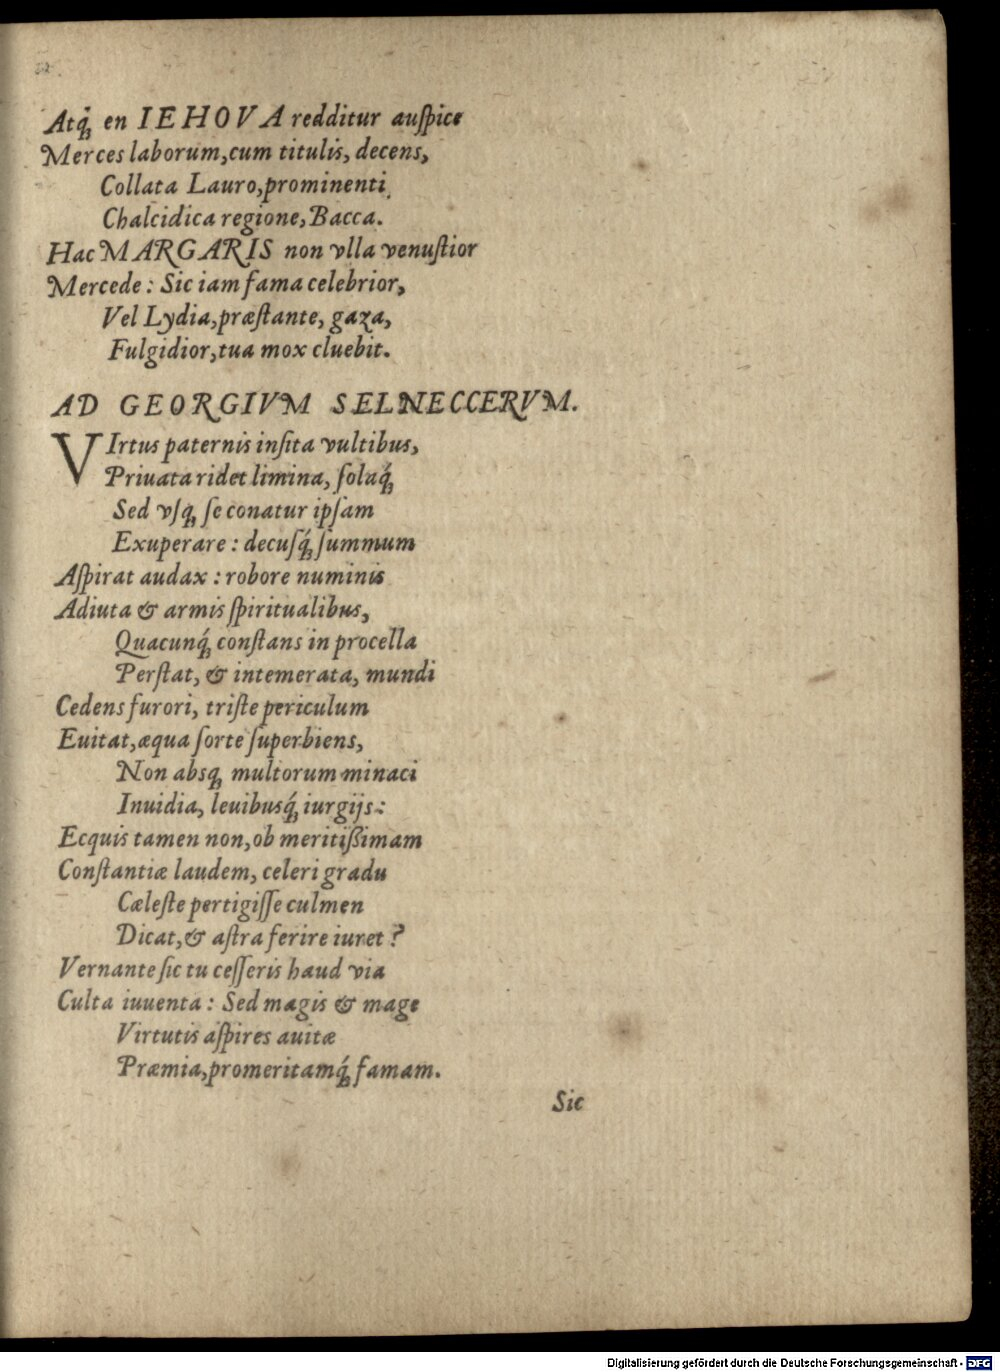 Atq́; en IEHOVA redditur auſpice
Merces laborum, cum titulis, decens,
Collata Lauro, prominenti
Chalcidica regione, Bacca.
Hac MARGARIS non vlla venuſtior
Mercede: Sic iam fama celebrior,
Vel Lydia, præſtante, gaza,
Fulgidior, tua mox cluebit.
AD GEORGIVM SELNECCERVM.
VIrtus paternis inſita vultibus,
Priuata ridet limina, ſolaq́;
Sed vſq; ſe conatur ipſam
Exuperare: decuſq́; ſummum
Aſpirat audax: robore numinis
Adiuta & armis ſpiritualibus,
Quacunq́; conſtans in procella
Perſtat, & intemerata, mundi
Cedens furori, triſte periculum
Euitat, æqua ſorte ſuperbiens,
Non absq; multorum minaci
Inuidia, leuibusq́; iurgijs:
Ecquis tamen non, ob meritißimam
Conſtantiæ laudem, celeri gradu
Cæleſte pertigiſſe culmen
Dicat, & aſtra ferire iuret?
Vernante ſic tu ceſſeris haud via
Culta iuuenta: Sed magis & mage
Virtutis aſpires auitæ
Præmia, promeritamq́; famam.
Sic
Digitalisierung gefördert durch die Deutsche Forschungsgemeinschaft - DFG